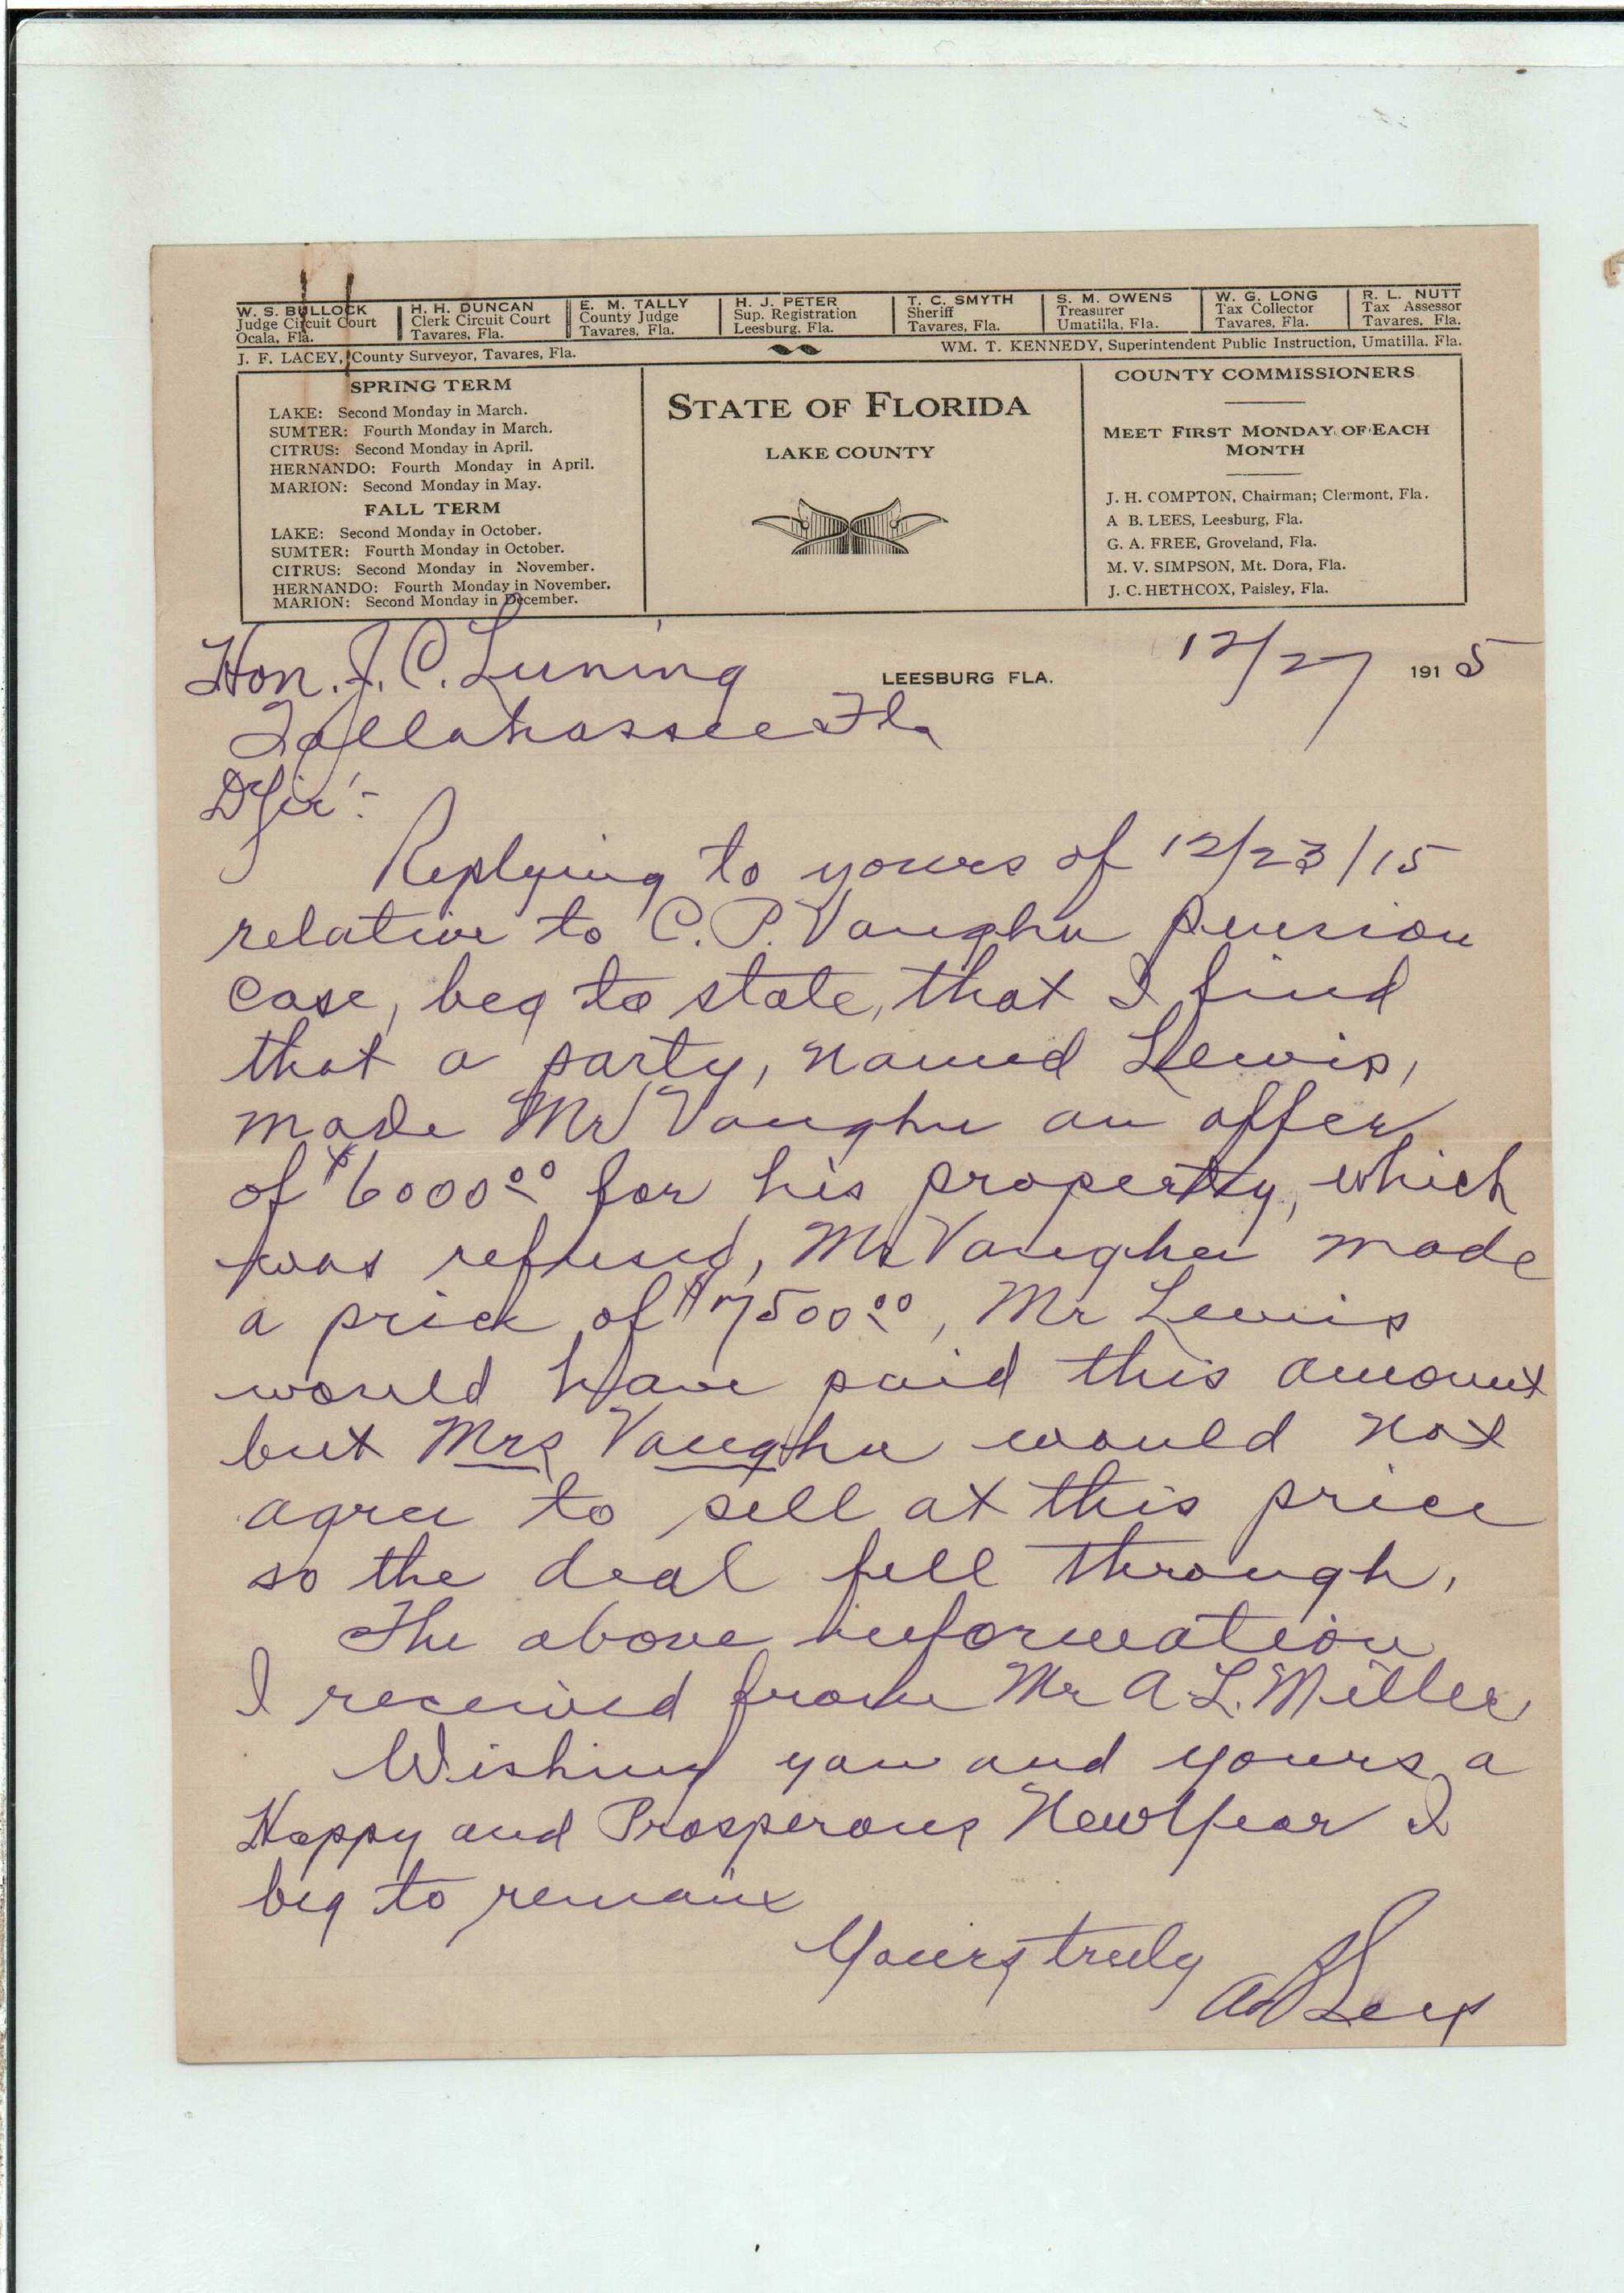 W. S. BULLOCK
Judge Circuit Court
Ocala, Fla.
H. H. DUNCAN
Clerk Circuit Court
Tavares, Fla.
E. M. TALLY
County Judge
Tavares, Fla.
H. J. PETER
Sup. Registration
Leesburg, Fla.
T. C. SMYTH
Sheriff
Tavares, Fla.
S. M. OWENS
Treasurer
Umatilla, Fla.
W. G. LONG
Tax Collector
Tavares, Fla.
R. L. NUTT
Tax Assessor
Tavares, Fla.
J. F. LACEY, County Surveyor, Tavares, Fla.
WM. T. KENNEDY, Superintendent Public Instruction, Umatilla. Fla.
SPRING TERM
LAKE: Second Monday in March.
SUMTER: Fourth Monday in March.
CITRUS: Second Monday in April.
HERNANDO: Fourth Monday in April.
MARION: Second Monday in May.
FALL TERM
LAKE: Second Monday in October.
SUMTER: Fourth Monday in October.
CITRUS: Second Monday in November.
HERNANDO: Fourth Monday in November.
MARION: Second Monday in December.
STATE OF FLORIDA
LAKE COUNTY
COUNTY COMMISSIONERS
MEET FIRST MONDAY OF EACH
MONTH
J. H. COMPTON, Chairman; Clermont, Fla.
A B. LEES, Leesburg, Fla.
G. A. FREE, Groveland, Fla.
M. V. SIMPSON, Mt. Dora, Fla.
J. C. HETHCOX, Paisley, Fla.
Hon. J. C. Luning
LEESBURG FLA. 12/27 1915
Tallahassee Fla
D Sir:-
Replying to yours of 12/23/15
relative to C. P. Vaughn pension
case, beg to state, that I find
that a party, named Lewis,
made Mr Vaughn an offer
of $6000.00 for his property, which
was refused, Mr Vaughn made
a price of $7500.00, Mr Lewis
would have paid this amount
but Mrs Vaughn would not
agree to sell at this price
so the deal fell through.
The above information
I received from Mr A. L. Miller
Wishing you and yours a
Happy and Prosperous New Year I
beg to remain
Yours truly
A B Lees